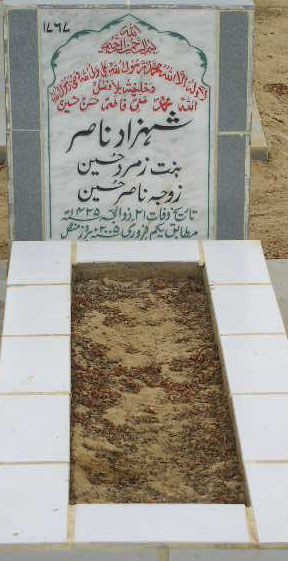 ۱۷۶۷
بسم اللہ الرحمن الرحیم
لا الہ الا اللہ محمد رسول اللہ علی ولی اللہ
وخلیفتہ بلا فصل
اللہ محمد علی فاطمہ حسن حسین
شہزاد ناصر
بنت زمرد حسین
زوجہ ناصر حسین
تاریخ وفات ۲۱ ذوالحجہ ۱۴۲۵ھ
مطابق یکم فروری ۲۰۰۵ بروز منگل